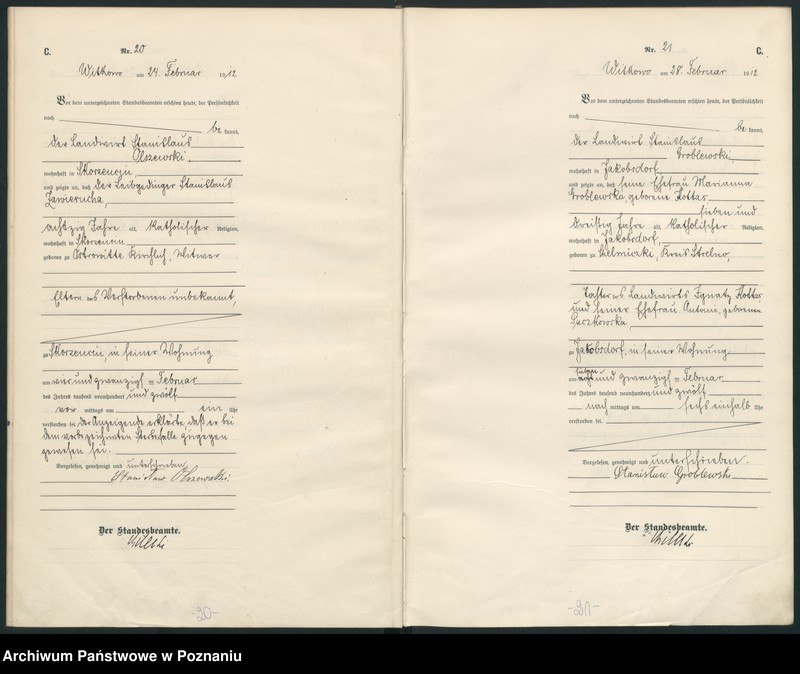 C.
Nr. 20
Witkowo am 24. Februar 1912
Vor dem unterzeichneten Standesbeamten erschien heute, der Persönlichkeit
nach
be kannt,
der Landwirt Stanislaus
Olszewski,
wohnhaft in Skorzencin
und zeigte an, daß der Leibgedinger Stanislaus
Zawierucha,
achtzig Jahre alt, katholischer Religion,
wohnhaft in Skorzencin
geboren zu Ostrowitte Kirchlich, Witwer
Eltern des Verstorbenen unbekannt,
zu Skorzencin, in seiner Wohnung
am vierundzwanzigsten Februar
des Jahres tausend neunhundert und zwölf
vor mittags um ein Uhr
verstorben sei. der Anzeigende erklärte, daß er bei
dem vorbezeichneten Sterbefalle zugegen
gewesen sei.
Vorgelesen, genehmigt und unterschrieben
Stanisław Olszewski.
Der Standesbeamte.
-20-
C.
Nr. 21
Witkowo am 28. Februar 1912
Vor dem unterzeichneten Standesbeamten erschien heute, der Persönlichkeit
nach
be kannt,
der Landwirt Stanislaus
Groblewski,
wohnhaft in Jakobsdorf,
und zeigte an, daß seine Ehefrau Marianna
Groblewska, geborene Kottas,
sieben und
dreißig Jahre alt, katholischer Religion,
wohnhaft in Jakobsdorf,
geboren zu Kreis Strelno,
Tochter des Landwirts Ignatz Kottas
und seiner Ehefrau Antonie, geborenen
zu Jakobsdorf, in seiner Wohnung
am und zwanzigsten Februar
des Jahres tausend neunhundert und zwölf
nach mittags um sechs einhalb Uhr
verstorben sei.
Vorgelesen, genehmigt und unterschrieben.
Stanisław Groblewski
Der Standesbeamte.
-21-
Archiwum Państwowe w Poznaniu